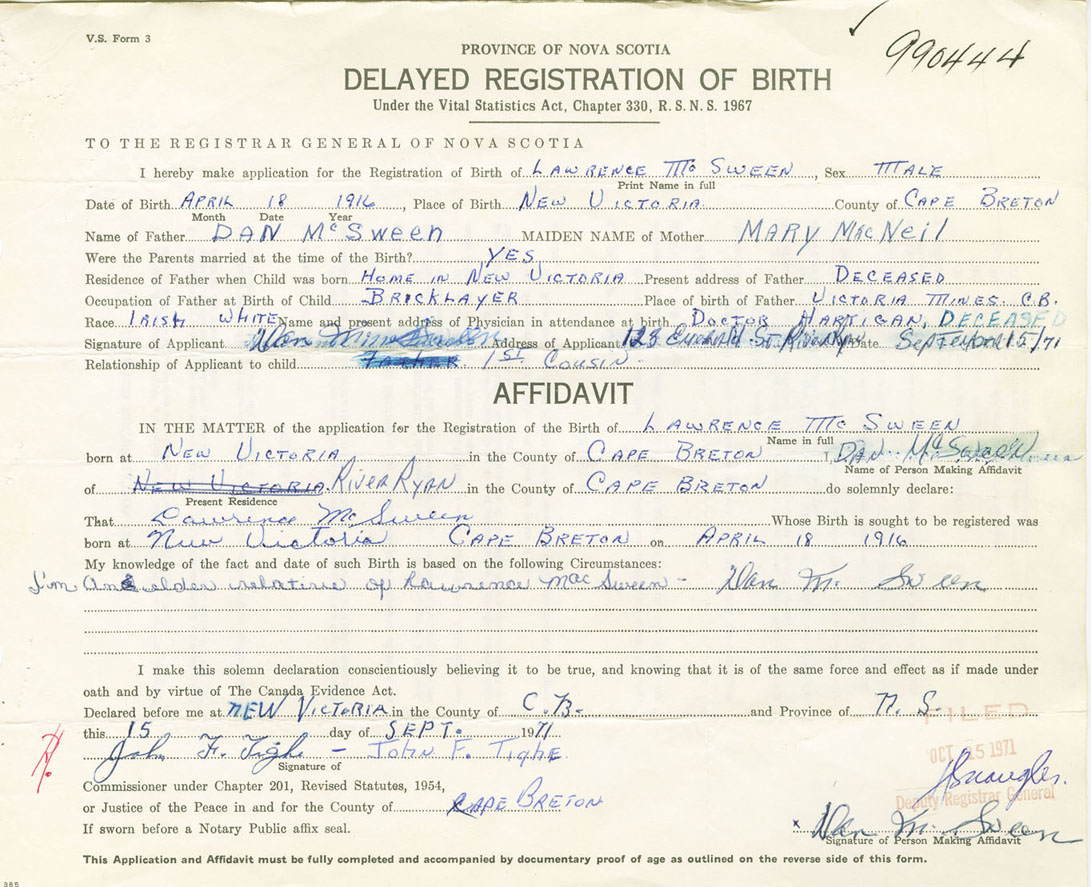 V.S. Form 3
990444
PROVINCE OF NOVA SCOTIA
DELAYED REGISTRATION OF BIRTH
Under the Vital Statistics Act, Chapter 330, R.S.N.S. 1967
TO THE REGISTRAR GENERAL OF NOVA SCOTIA
I hereby make application for the Registration of Birth of LAWRENCE Mc SWEEN, Sex MALE
Print Name in full
Date of Birth APRIL 18 1916, Place of Birth NEW VICTORIA County of CAPE BRETON
Month Date Year
Name of Father DAN McSween MAIDEN NAME of Mother MARY MacNeil
Were the Parents married at the time of the Birth? YES
Residence of Father when Child was born HOME IN NEW VICTORIA Present address of Father DECEASED
Occupation of Father at Birth of Child BRICKLAYER Place of birth of Father VICTORIA MINES. C.B.
Race IRISH WHITE Name and present address of Physician in attendance at birth DOCTOR HARTIGAN, DECEASED
Signature of Applicant Dan Address of Applicant 123 St. River Ryan Date September 15/71
Relationship of Applicant to child Father 1ST COUSIN
AFFIDAVIT
IN THE MATTER of the application for the Registration of the Birth of LAWRENCE Mc SWEEN
Name in full
born at NEW VICTORIA in the County of CAPE BRETON I, DAN McSWEEN
Name of Person Making Affidavit
of NEW VICTORIA River Ryan in the County of CAPE BRETON do solemnly declare:
Present Residence
That Lawrence McSween Whose Birth is sought to be registered was
born at New Victoria CAPE BRETON on APRIL 18 1916
My knowledge of the fact and date of such Birth is based on the following Circumstances:
I'm An elder relative of Lawrence MacSween - Dan Mc Sween
I make this solemn declaration conscientiously believing it to be true, and knowing that it is of the same force and effect as if made under
oath and by virtue of The Canada Evidence Act.
Declared before me at NEW VICTORIA in the County of C.B. and Province of N.S.
this 15 day of SEPT. 1971
FILED
OCT 15 1971
John F. Tighe - JOHN F. TIGHE
Signature of
Deputy Registrar General
Commissioner under Chapter 201, Revised Statutes, 1954,
or Justice of the Peace in and for the County of CAPE BRETON
If sworn before a Notary Public affix seal.
x Dan Mc Sween
Signature of Person Making Affidavit
This Application and Affidavit must be fully completed and accompanied by documentary proof of age as outlined on the reverse side of this form.
385